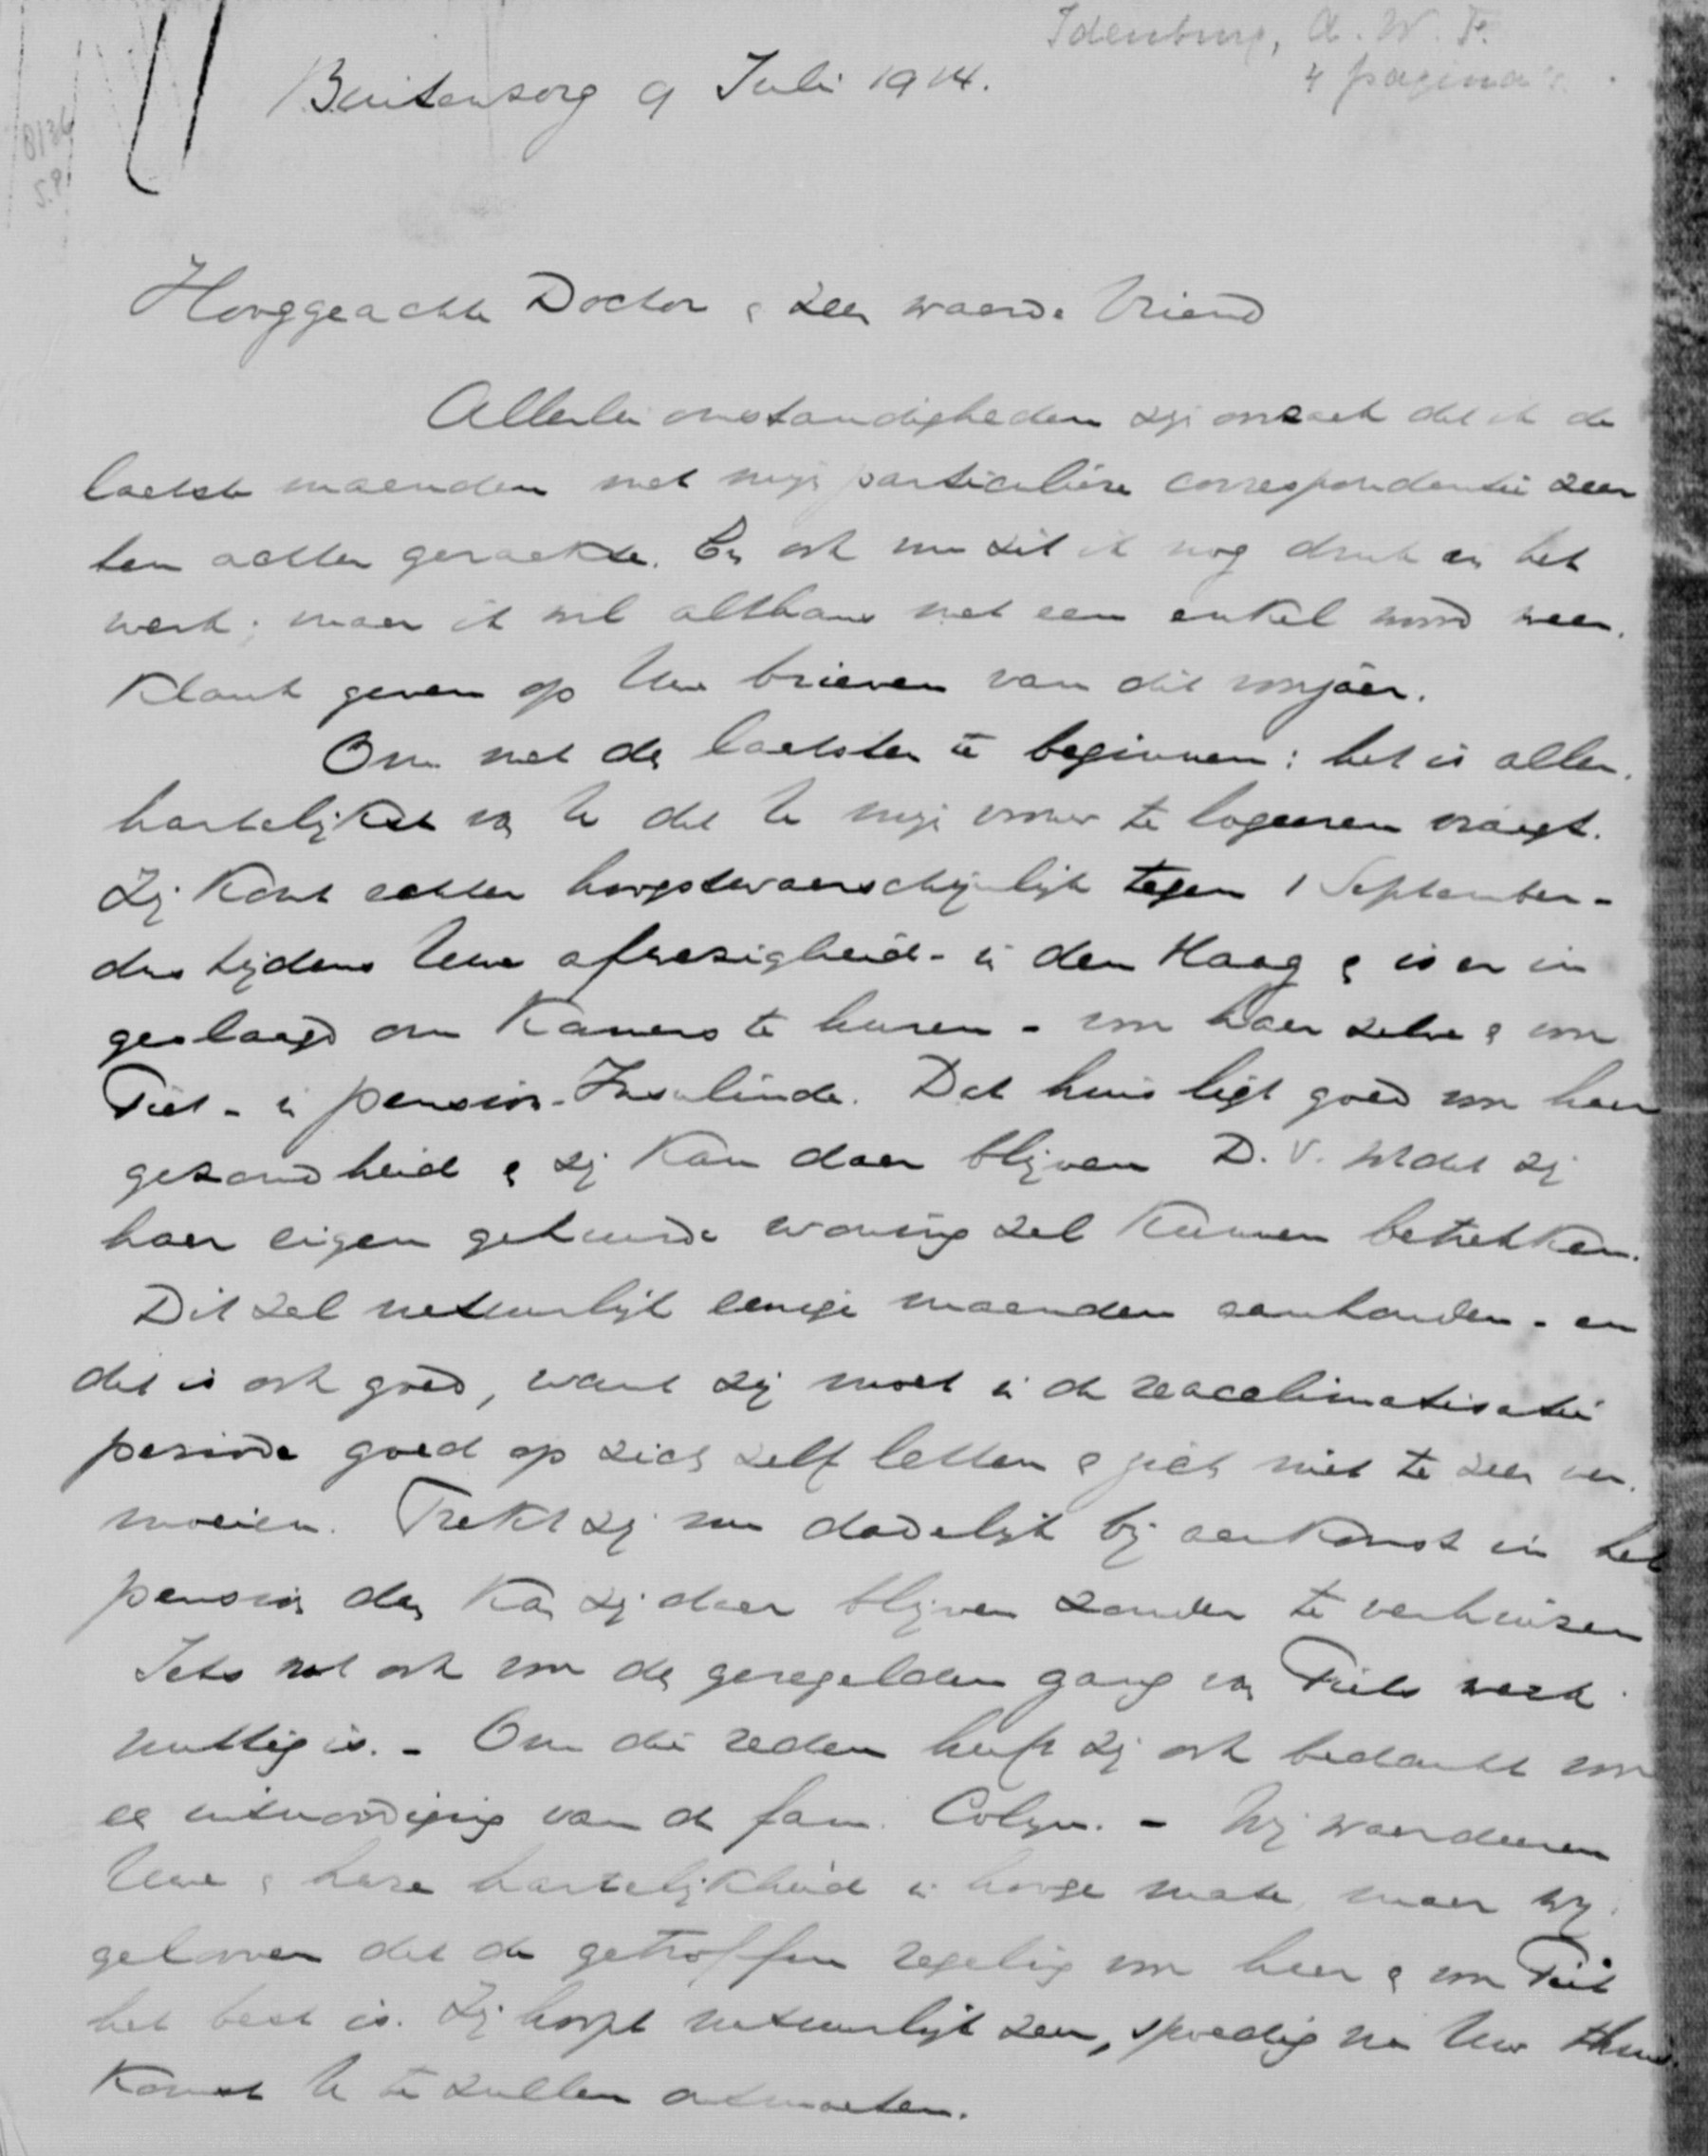 Idenburg, A. W. F.
4 pagina's
Buitenzorg 9 Juli 1914.
Hooggeachte Doctor & zeer waarde Vriend
Allerlei omstandigheden zijn oorzaak dat ik de
laatste maanden met mijn particuliere correspondentie zeer
ten achter geraakte. En ook nu zit ik nog druk in het
werk; maar ik wil althans met een enkel woord weer-
klank geven op Uwe brieven van dit voorjaar.
Om met de laatsten te beginnen: het is aller-
hartelijkst van U dat U mijn vrouw te logeeren vraagt.
Zij komt echter hoogstwaarschijnlijk tegen 1 September -
dus tijdens Uwe afwezigheid - in den Haag & is er in
geslaagd om kamers te huren - voor haar zelve & voor
Piet - in pension-Insulinde. Dat huis ligt goed voor haar
gezondheid & zij kan daar blijven D.V. totdat zij
haar eigen gehuurde woning zal kunnen betrekken.
Dit zal natuurlijk eenige maanden aanhouden - en
dat is ook goed, want zij moet in de reacclimatisatie
periode goed op zich zelf letten & zich niet te zeer ver-
moeien. Trekt zij nu dadelijk bij aankomst in het
pension dan kan zij daar blijven zonder te verhuizen
Iets wat ook voor den geregelden gang van Piets werk
nuttig is. - Om die reden heeft zij ook bedankt voor
een uitnoodiging van de fam. Colijn. - Wij waardeeren
Uwe & hare hartelijkheid in hooge mate, maar wij
gelooven dat de getroffen regeling voor haar & voor Piet
het best is. Zij hoopt natuurlijk zeer, spoedig na Uw thuis-
komst U te zullen ontmoeten.